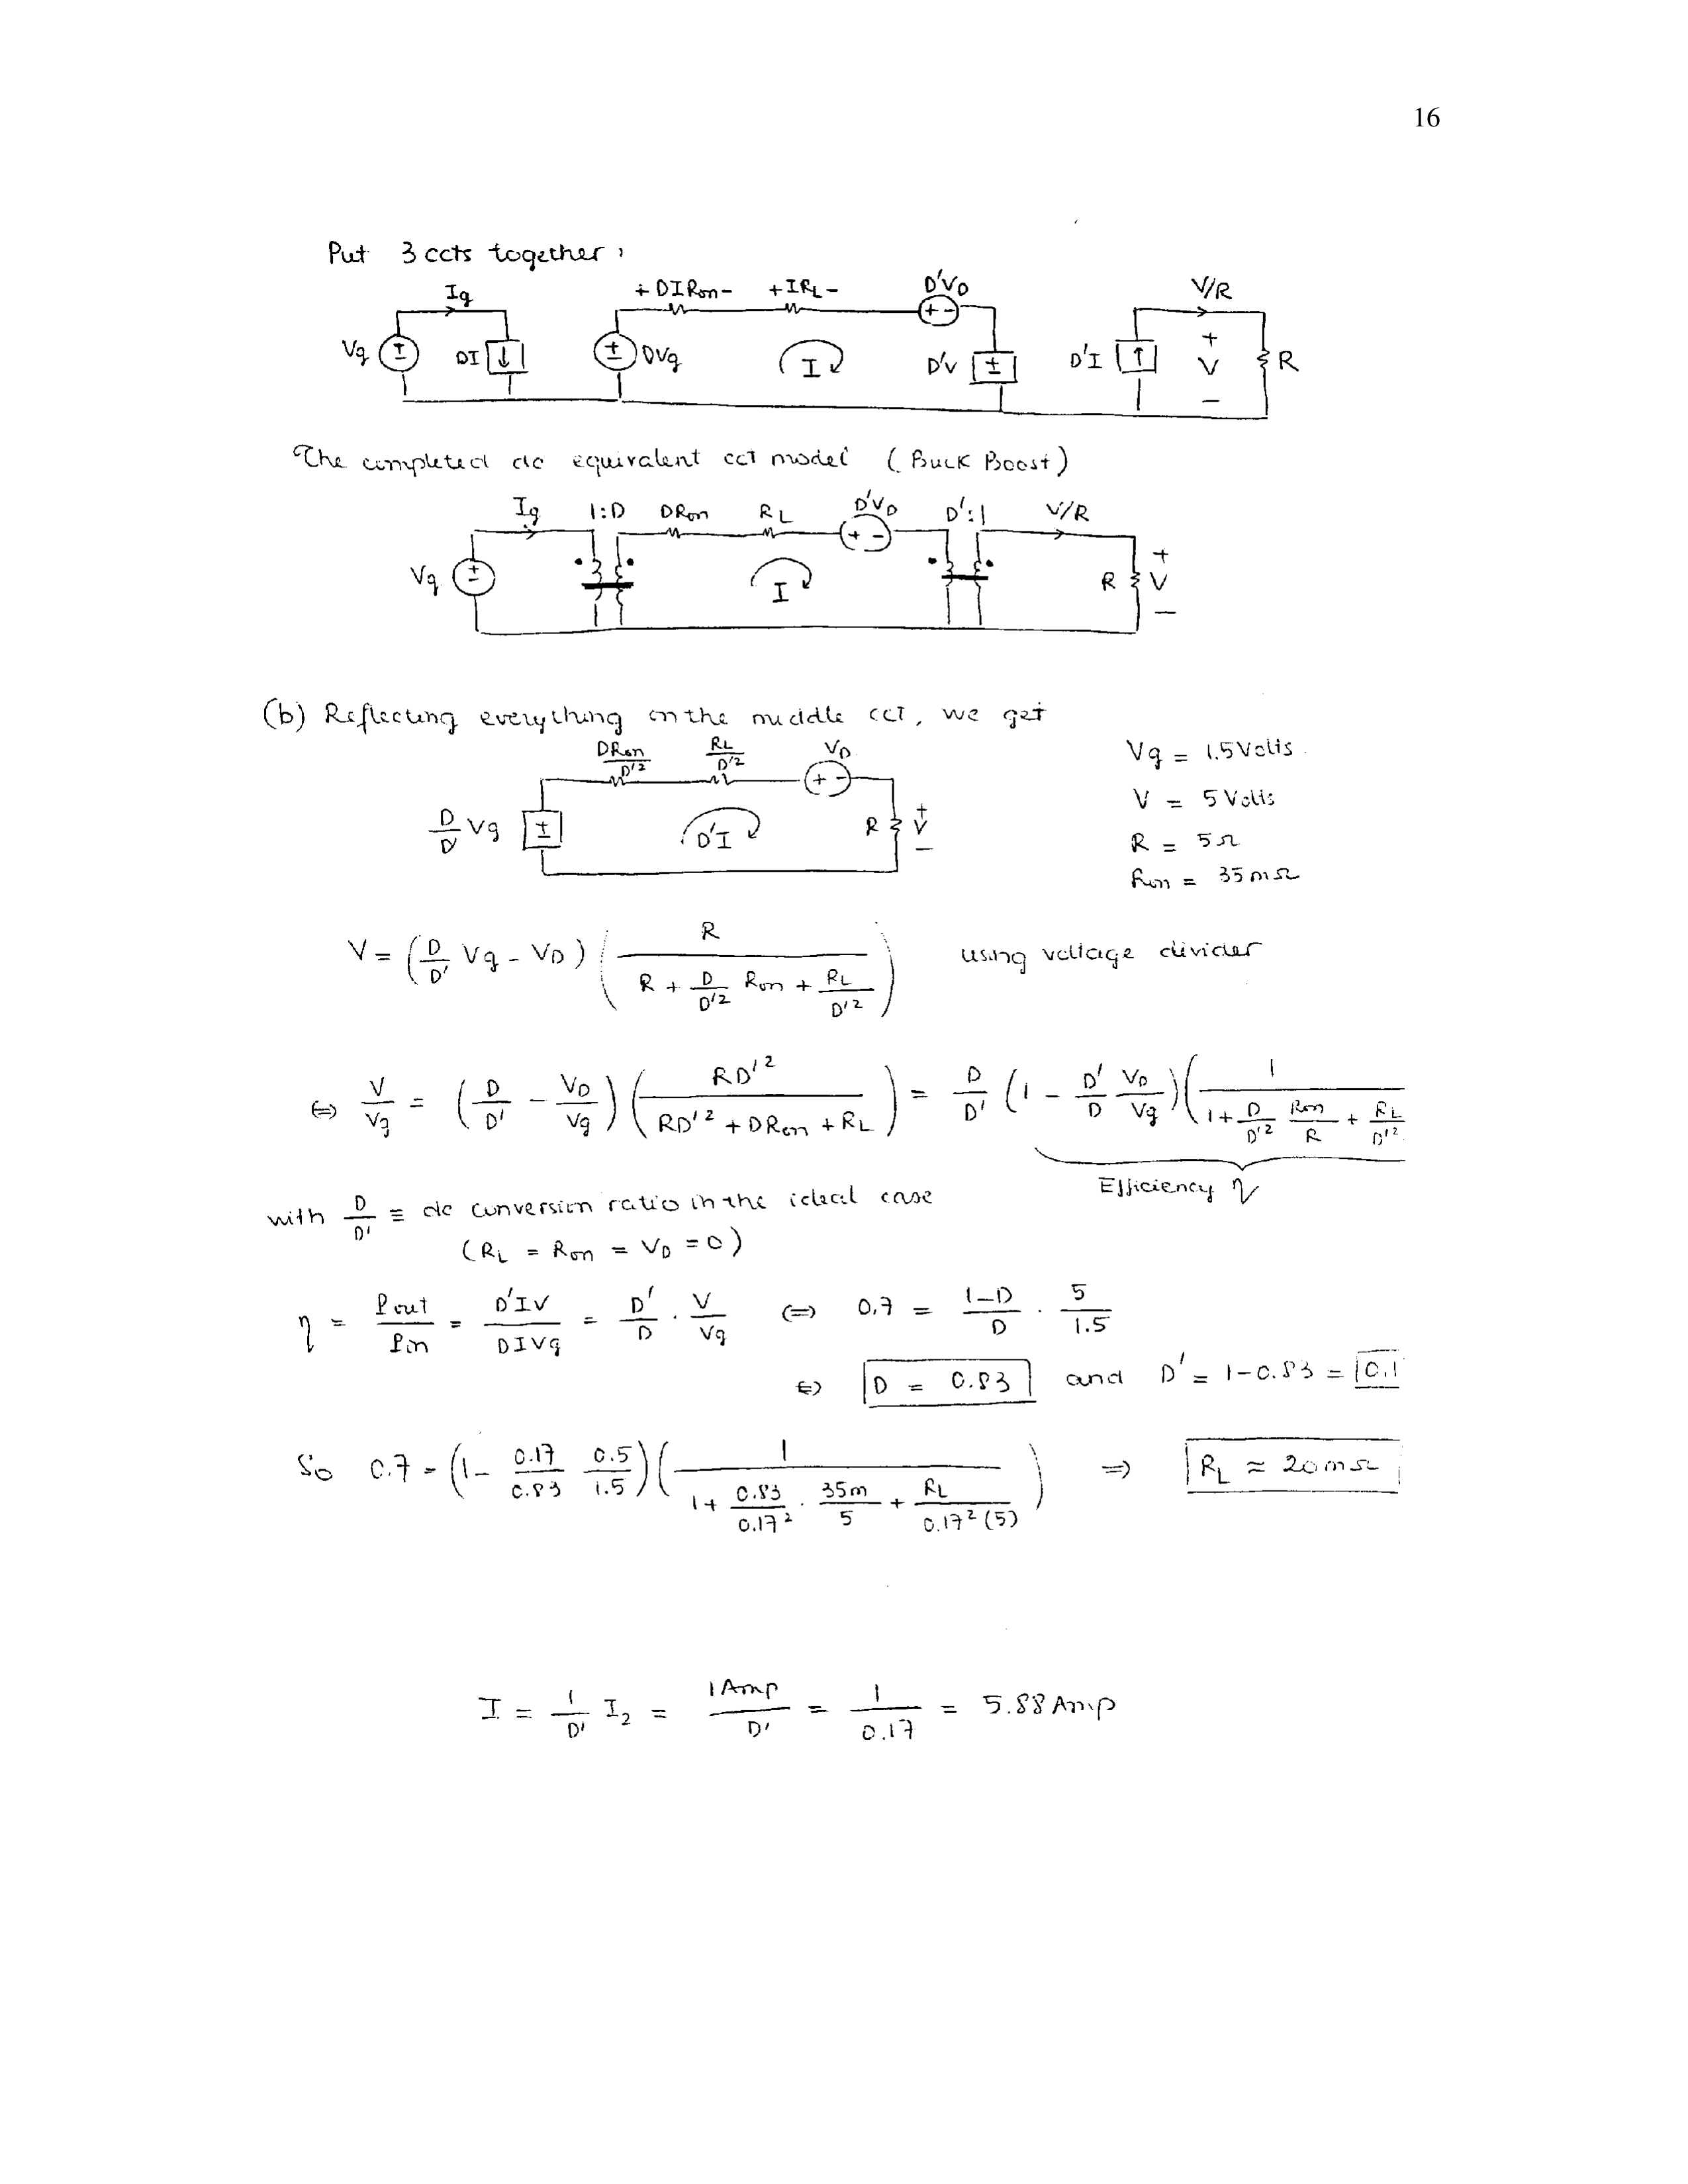 16
Put 3 ccts together,
Ig + DIRon - + IRL - D'VD V/R
Vg DI DVg I D'V D'I + V - R
The completed dc equivalent cct model (Buck Boost)
Ig 1:D DRon RL D'VD D':1 V/R
Vg I R + V -
(b) Reflecting everything on the middle cct, we get
DRon/D'² RL/D'² VD
D/D' Vg D'I R + V -
Vg = 1.5 Volts.
V = 5 Volts
R = 5Ω
Ron = 35mΩ
V = (D/D' Vg - VD) (R / (R + D/D'² Ron + RL/D'²)) using voltage divider
⇔ V/Vg = (D/D' - VD/Vg) (RD'² / (RD'² + DRon + RL)) = D/D' (1 - D'/D VD/Vg) (1 / (1 + D/D'² Ron/R + RL/D'²
Efficiency η
with D/D' ≡ dc conversion ratio in the ideal case
(RL = Ron = VD = 0)
η = Pout/Pin = D'IV/DIVg = D'/D · V/Vg ⇔ 0.7 = (1-D)/D · 5/1.5
⇔ D = 0.83 and D' = 1-0.83 = 0.1
So 0.7 = (1 - 0.17/0.83 0.5/1.5) (1 / (1 + 0.83/0.17² · 35m/5 + RL/0.17²(5))) ⇒ RL ≈ 20mΩ
I = 1/D' I2 = 1Amp/D' = 1/0.17 = 5.88 Amp